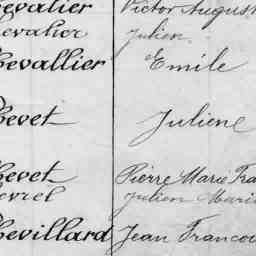 hevalier Victor August
hevalier Julien
hevallier Emile
hevet Juliene
hevet Pierre Marie Fra
evrel Julien Marie
hevillard Jean Francoi